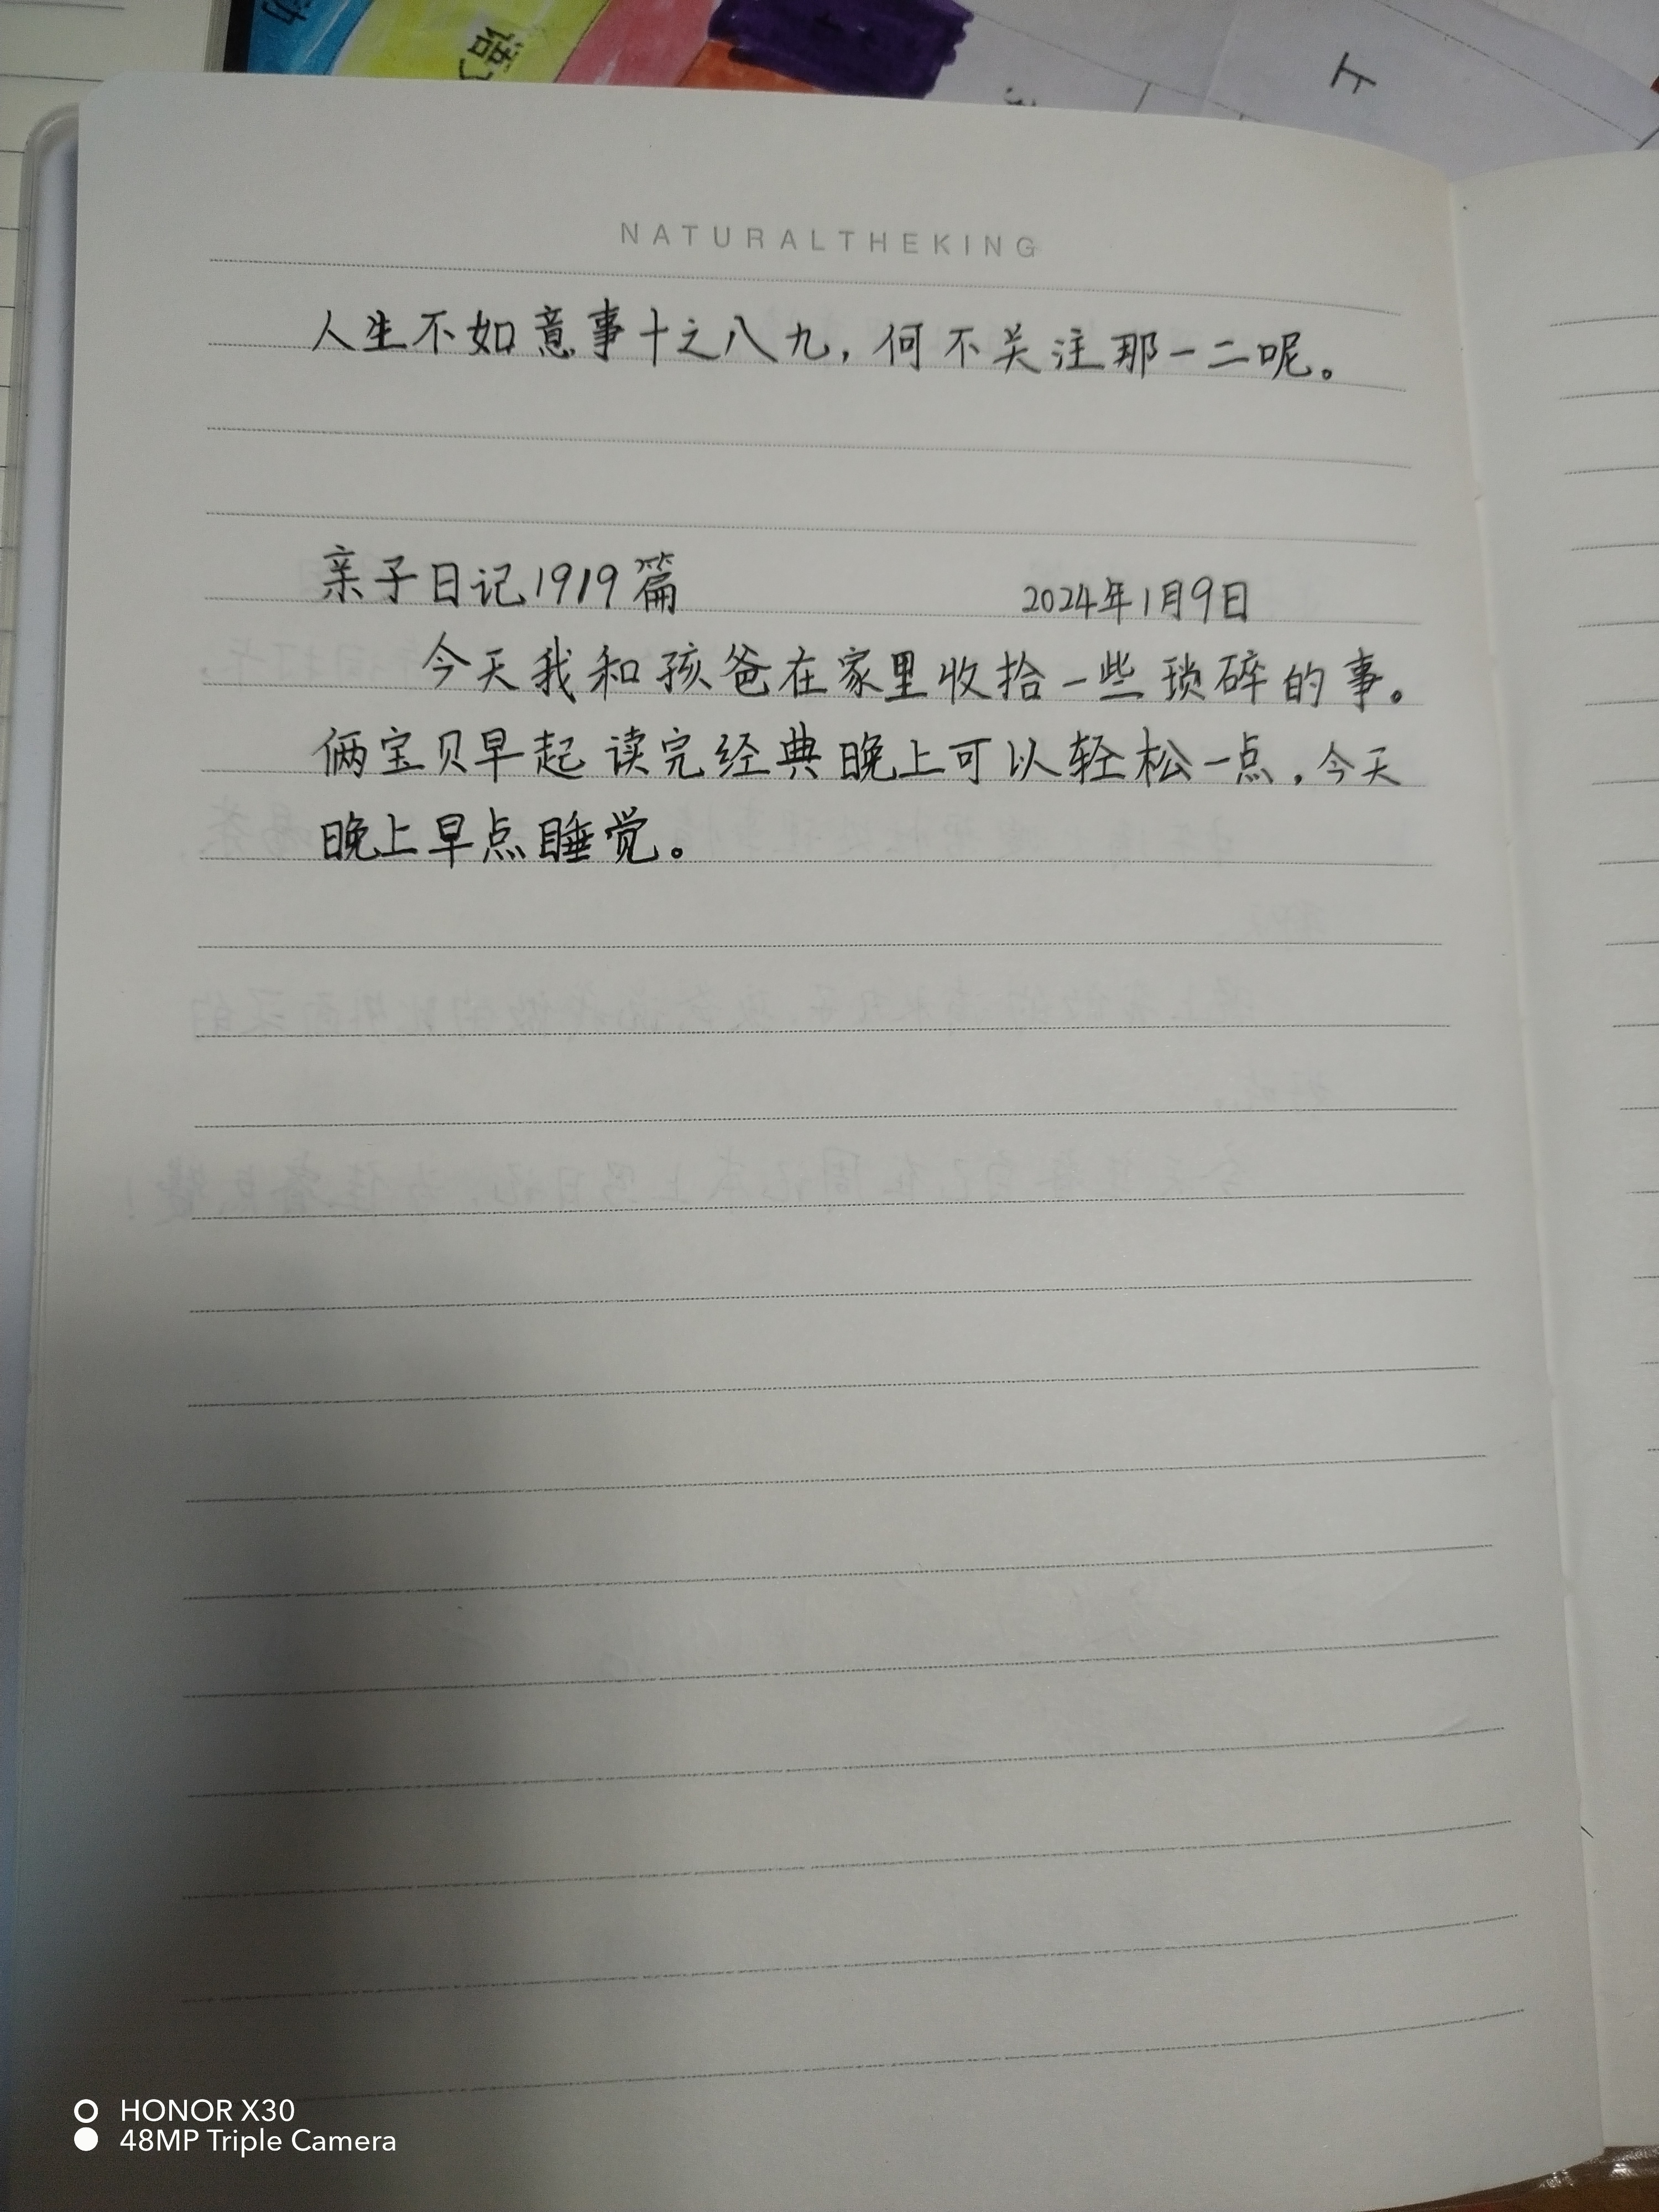 NATURALTHEKING
人生不如意事十之八九，何不关注那一二呢。
亲子日记1919篇 2024年1月9日
今天我和孩爸在家里收拾一些琐碎的事。
俩宝贝早起读完经典晚上可以轻松一点，今天
晚上早点睡觉。
HONOR X30
48MP Triple Camera